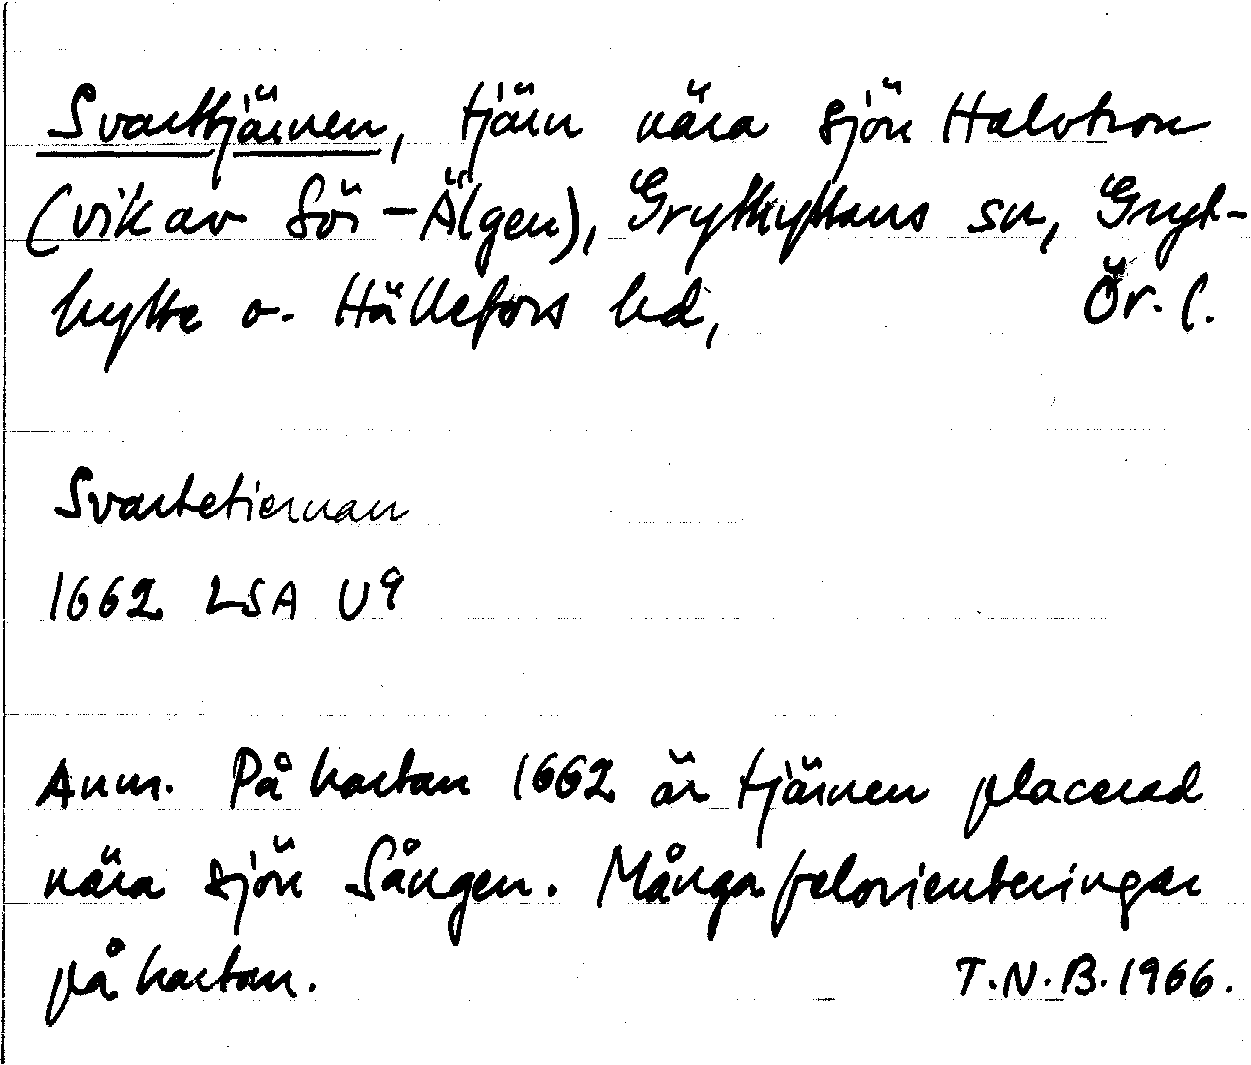 Svarttjärnen, tjärn nära sjön Halvtron
(vik av Sör-Älgen), Grythyttans sn, Gryt-
hytte o. Hällefors hd, Ör. l.
Svartetiernan
1662 LSA U9
Anm. På kartan 1662 är tjärnen placerad
nära sjön Sången. Många felorienteringar
på kartan. T.N.B. 1966.